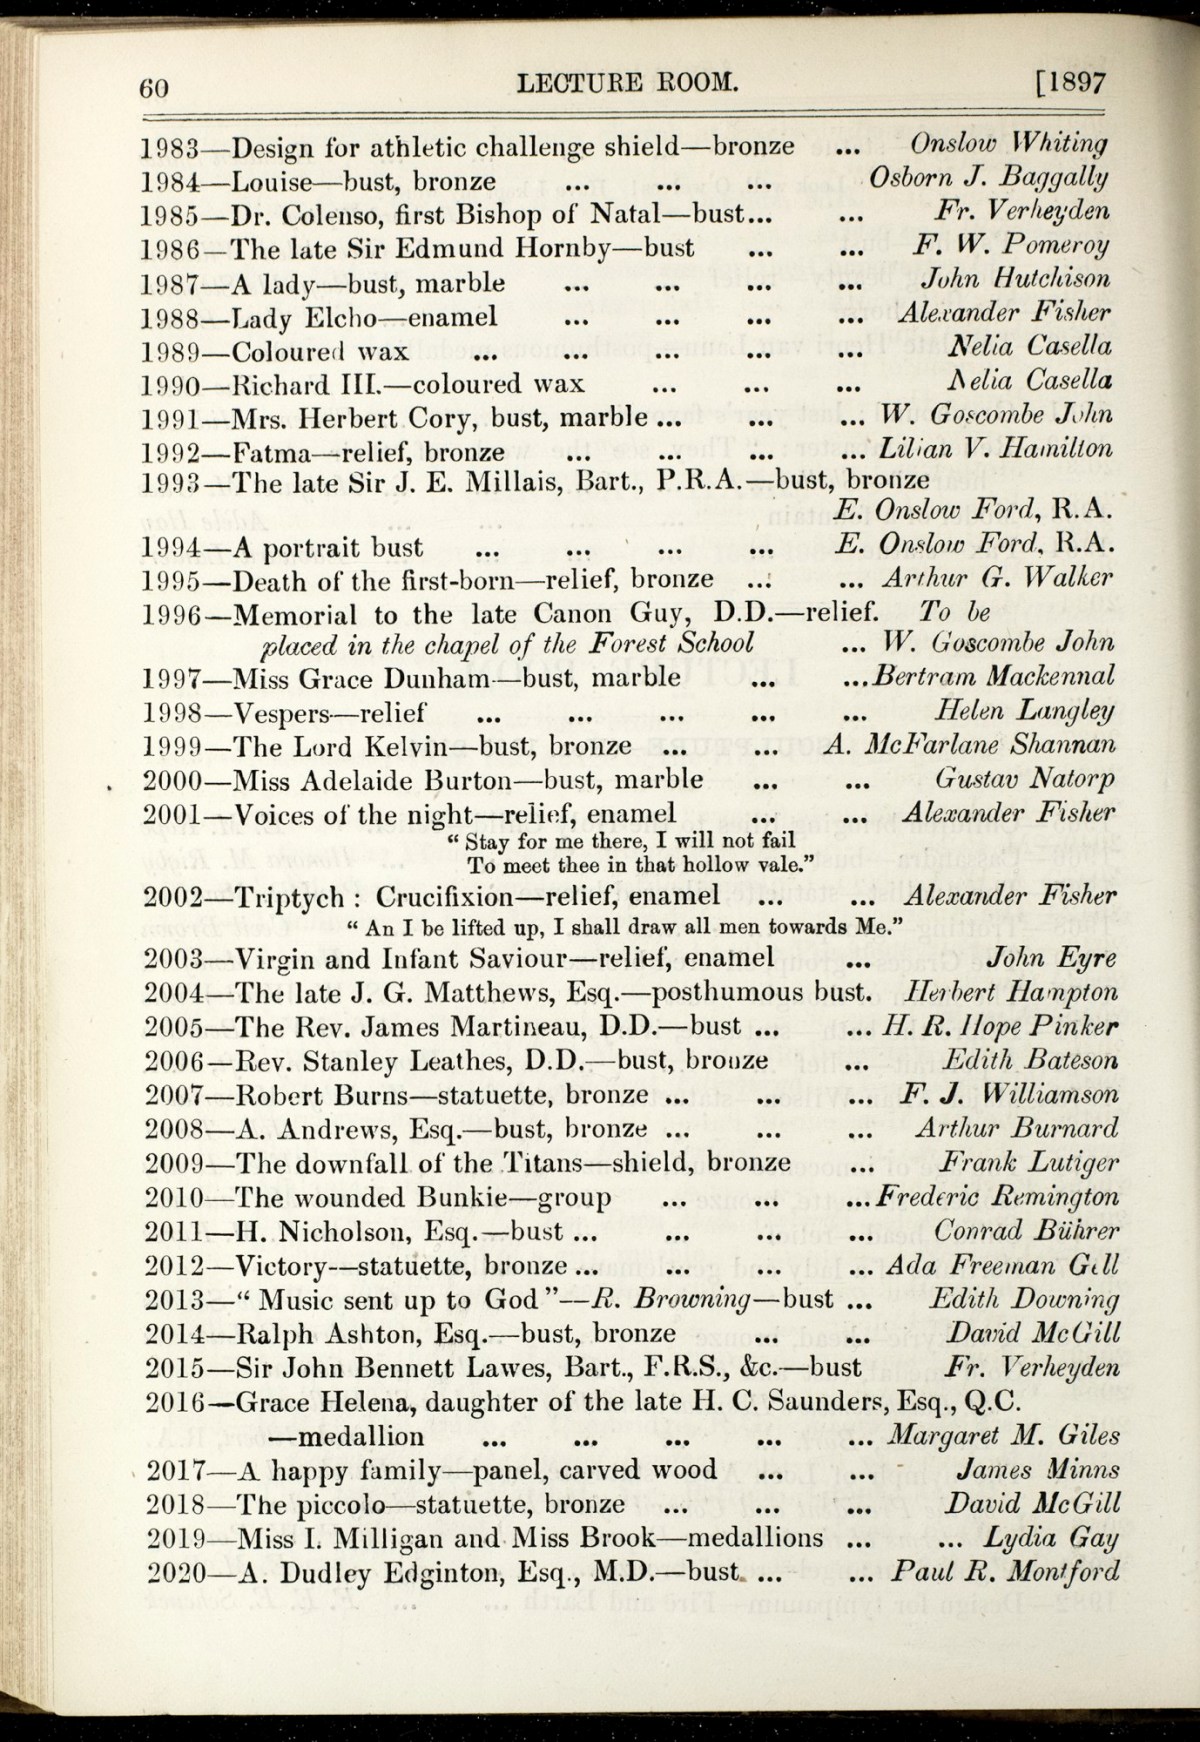 60 LECTURE ROOM. [1897
1983—Design for athletic challenge shield—bronze ... Onslow Whiting
1984—Louise—bust, bronze ... ... ... Osborn J. Baggally
1985—Dr. Colenso, first Bishop of Natal—bust... ... Fr. Verheyden
1986—The late Sir Edmund Hornby—bust ... ... F. W. Pomeroy
1987—A lady—bust, marble ... ... ... ... John Hutchison
1988—Lady Elcho—enamel ... ... ... ... Alexander Fisher
1989—Coloured wax ... ... ... ... ... Nelia Casella
1990—Richard III.—coloured wax ... ... ... Nelia Casella
1991—Mrs. Herbert Cory, bust, marble ... ... ... W. Goscombe John
1992—Fatma—relief, bronze ... ... ... ... Lilian V. Hamilton
1993—The late Sir J. E. Millais, Bart., P.R.A.—bust, bronze
E. Onslow Ford, R.A.
1994—A portrait bust ... ... ... ... E. Onslow Ford, R.A.
1995—Death of the first-born—relief, bronze ... ... Arthur G. Walker
1996—Memorial to the late Canon Guy, D.D.—relief. To be
placed in the chapel of the Forest School ... W. Goscombe John
1997—Miss Grace Dunham—bust, marble ... ...Bertram Mackennal
1998—Vespers—relief ... ... ... ... ... Helen Langley
1999—The Lord Kelvin—bust, bronze ... ... A. McFarlane Shannan
2000—Miss Adelaide Burton—bust, marble ... ... Gustav Natorp
2001—Voices of the night—relief, enamel ... ... Alexander Fisher
“ Stay for me there, I will not fail
To meet thee in that hollow vale.”
2002—Triptych : Crucifixion—relief, enamel ... ... Alexander Fisher
“ An I be lifted up, I shall draw all men towards Me.”
2003—Virgin and Infant Saviour—relief, enamel ... John Eyre
2004—The late J. G. Matthews, Esq.—posthumous bust. Herbert Hampton
2005—The Rev. James Martineau, D.D.—bust ... ... H. R. Hope Pinker
2006—Rev. Stanley Leathes, D.D.—bust, bronze ... Edith Bateson
2007—Robert Burns—statuette, bronze ... ... ... F. J. Williamson
2008—A. Andrews, Esq.—bust, bronze ... ... ... Arthur Burnard
2009—The downfall of the Titans—shield, bronze ... Frank Lutiger
2010—The wounded Bunkie—group ... ... ...Frederic Remington
2011—H. Nicholson, Esq.—bust ... ... ... ... Conrad Bührer
2012—Victory—statuette, bronze ... ... ... ... Ada Freeman Gell
2013—“ Music sent up to God ”—R. Browning—bust ... Edith Downing
2014—Ralph Ashton, Esq.—bust, bronze ... ... David McGill
2015—Sir John Bennett Lawes, Bart., F.R.S., &c.—bust Fr. Verheyden
2016—Grace Helena, daughter of the late H. C. Saunders, Esq., Q.C.
—medallion ... ... ... ... ... Margaret M. Giles
2017—A happy family—panel, carved wood ... ... James Minns
2018—The piccolo—statuette, bronze ... ... ... David McGill
2019—Miss I. Milligan and Miss Brook—medallions ... ... Lydia Gay
2020—A. Dudley Edginton, Esq., M.D.—bust. ... ... Paul R. Montford